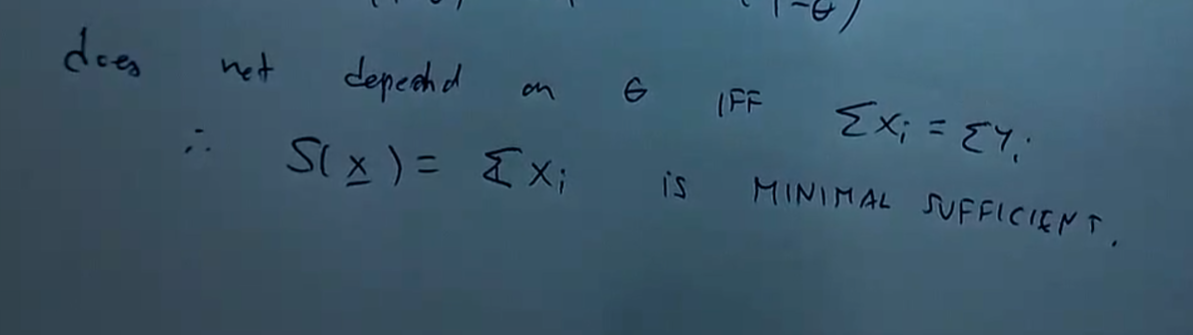 (1-θ)
does not depend on θ IFF Σxᵢ = Σyᵢ
∴ S(x̲) = Σxᵢ is MINIMAL SUFFICIENT.